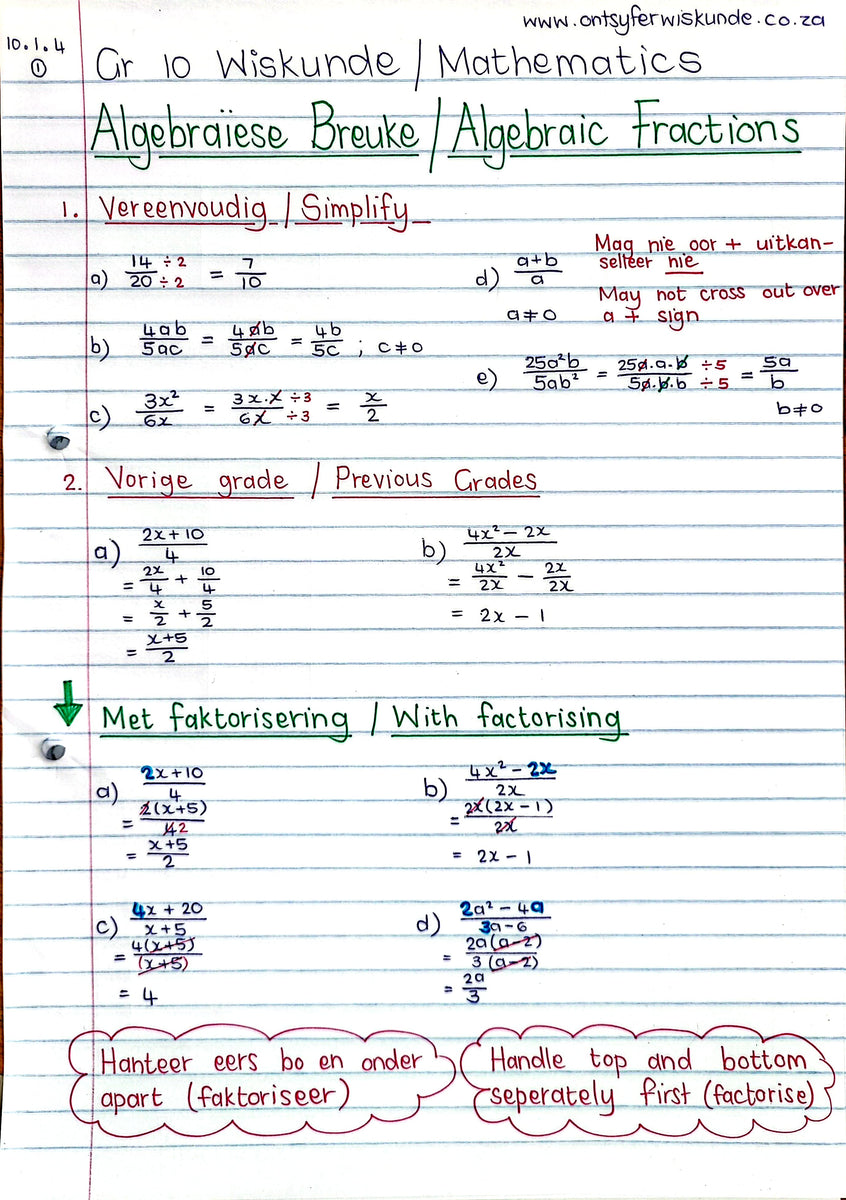 www.ontsyferwiskunde.co.za
10.1.4
①
Gr 10 Wiskunde / Mathematics
Algebraïese Breuke / Algebraic Fractions
1. Vereenvoudig / Simplify
a) 14 ÷2 / 20 ÷2 = 7/10
b) 4ab/5ac = 4ab/5ac = 4b/5c ; c≠0
c) 3x²/6x = 3x.x ÷3 / 6x ÷3 = x/2
d) a+b/a
a≠0
Mag nie oor + uitkan-
selleer nie
May not cross out over
a + sign
e) 25a²b/5ab² = 25a.a.b ÷5 / 5a.b.b ÷5 = 5a/b
b≠0
2. Vorige grade / Previous Grades
a) 2x+10/4
= 2x/4 + 10/4
= x/2 + 5/2
= x+5/2
b) 4x² − 2x/2x
= 4x²/2x − 2x/2x
= 2x − 1
Met faktorisering / With factorising
a) 2x+10/4
= 2(x+5)/42
= x+5/2
b) 4x² − 2x/2x
= 2x(2x − 1)/2x
= 2x − 1
c) 4x + 20/x+5
= 4(x+5)/(x+5)
= 4
d) 2a² − 4a/3a−6
= 2a(a−2)/3(a−2)
= 2a/3
Hanteer eers bo en onder
apart (faktoriseer)
Handle top and bottom
seperately first (factorise)